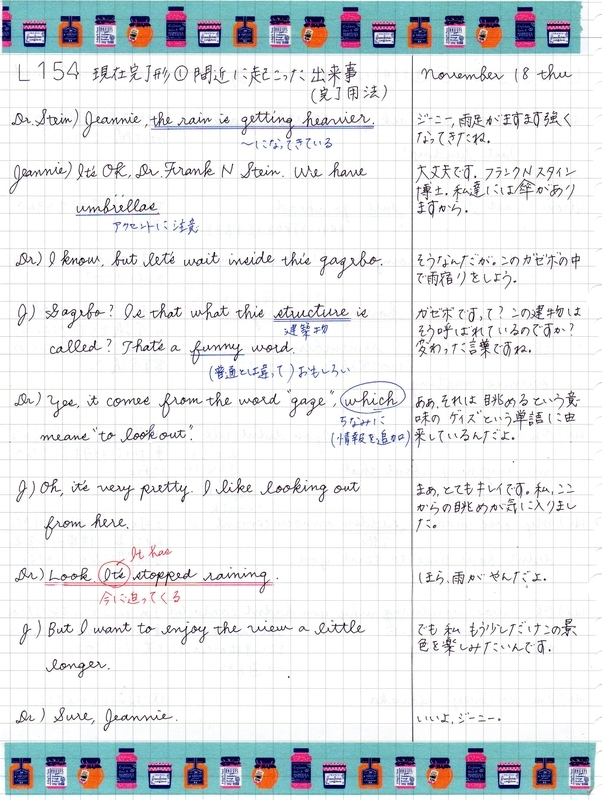 L154 現在完了形① 間近に起こった出来事
(完了用法)
November 18 thu
Dr. Stein) Jeannie, the rain is getting heavier.
〜になってきている
ジーニー, 雨足がますます強く
なってきたね。
Jeannie) It's OK, Dr. Frank N Stein. We have
umbrellas
アクセントに注意
大丈夫です。フランクNスタイン
博士。私達には傘があり
ますから。
Dr) I know, but let's wait inside this gagebo.
そうなんだが。このガゼボの中
で雨宿りをしよう。
J) Gagebo? Is that what this structure is
建築物
called? That's a funny word.
(普通とは違って)おもしろい
ガゼボですって? この建物は
そう呼ばれているのですか?
変わった言葉ですね。
Dr) Yes, it comes from the word "gaze", which
ちなみに
(情報を追加)
means "to look out".
ああ, それは眺めるという意
味の ゲイズという単語に由
来しているんだよ。
J) Oh, it's very pretty. I like looking out
from here.
まぁ, とてもキレイです。私, ここ
からの眺めが気に入りまし
た。
It has
Dr) Look. It's stopped raining.
今に迫ってくる
ほら, 雨がやんだよ。
J) But I want to enjoy the view a little
longer.
でも 私 もう少しだけこの景
色を楽しみたいんです。
Dr) Sure, Jeannie.
いいよ, ジーニー。